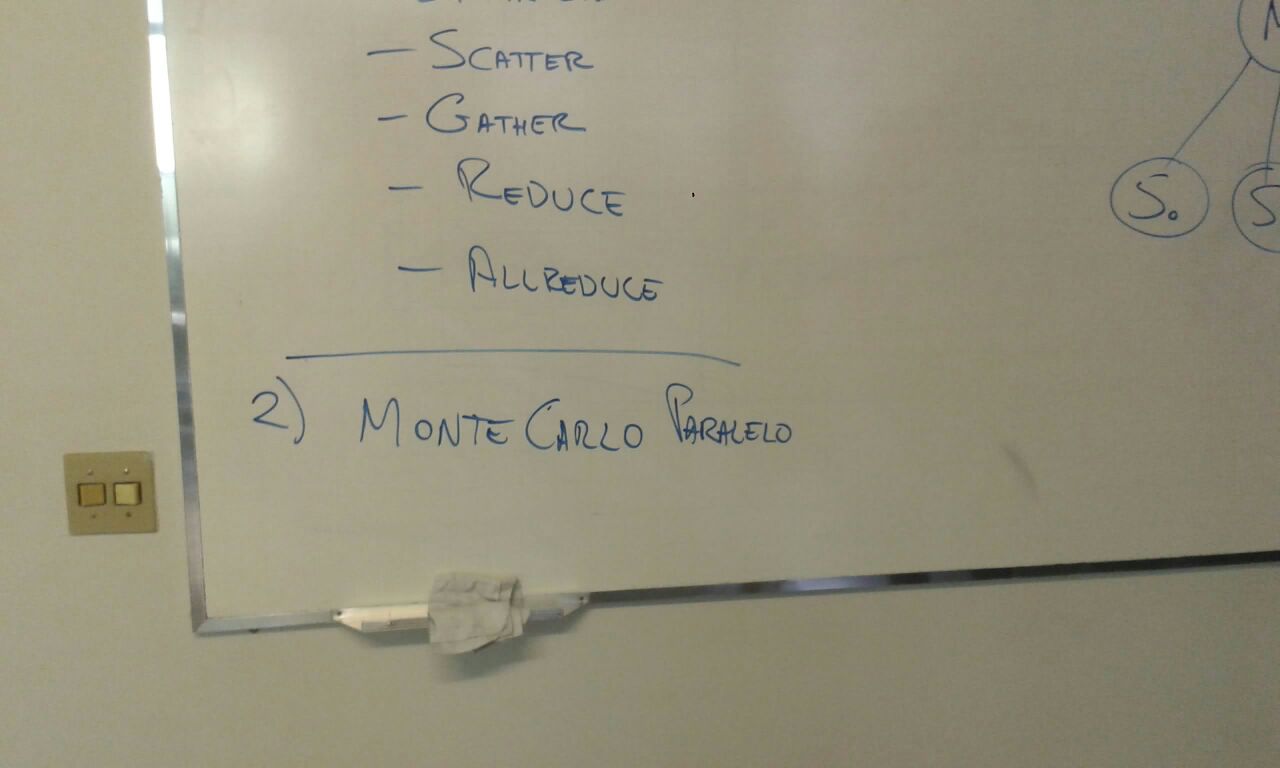 — SCATTER
— GATHER
— REDUCE
— ALLREDUCE
2) MONTE CARLO PARALELO
S₀
S